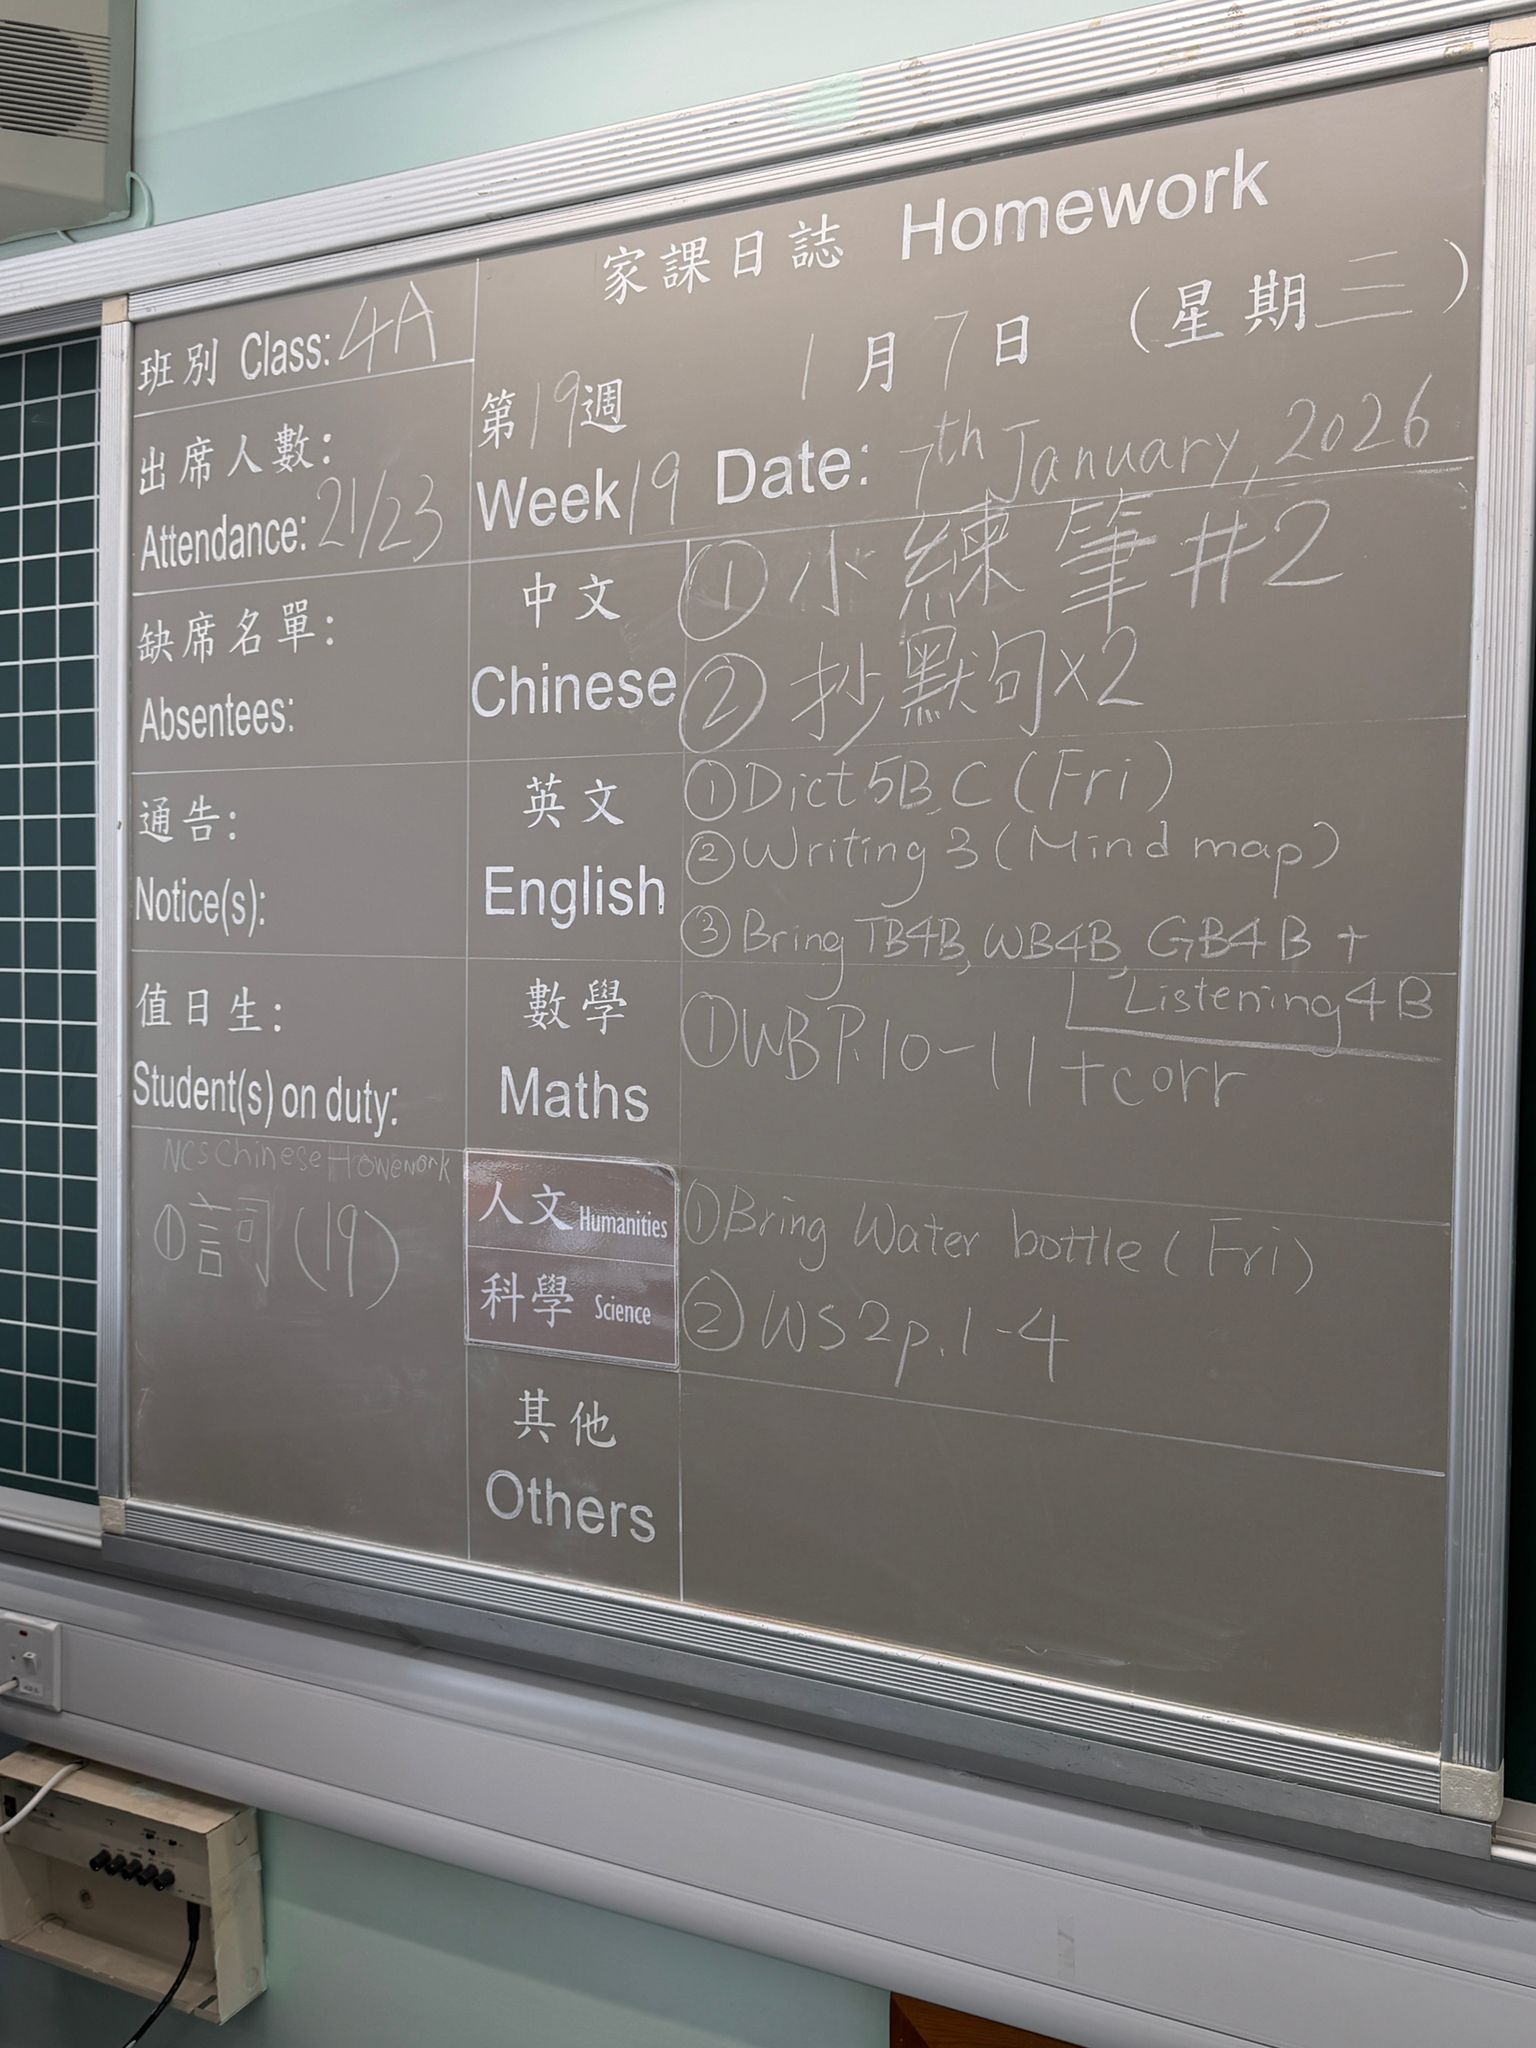 家課日誌 Homework
班別 Class: 4A
1月7日 (星期三)
第19週
出席人數:
Attendance: 21/23
Week 19 Date: 7th January, 2026
缺席名單:
Absentees:
中文
Chinese
① 小練筆#2
② 抄默句x2
通告:
Notice(s):
英文
English
① Dict 5B, C (Fri)
② Writing 3 (Mind map)
③ Bring TB4B, WB4B, GB4B +
Listening 4B
值日生:
Student(s) on duty:
數學
Maths
① WB P.10-11 + corr
NCS Chinese Homework
① 詞 (19)
人文 Humanities
科學 Science
① Bring Water bottle (Fri)
② WS2 p.1-4
其他
Others